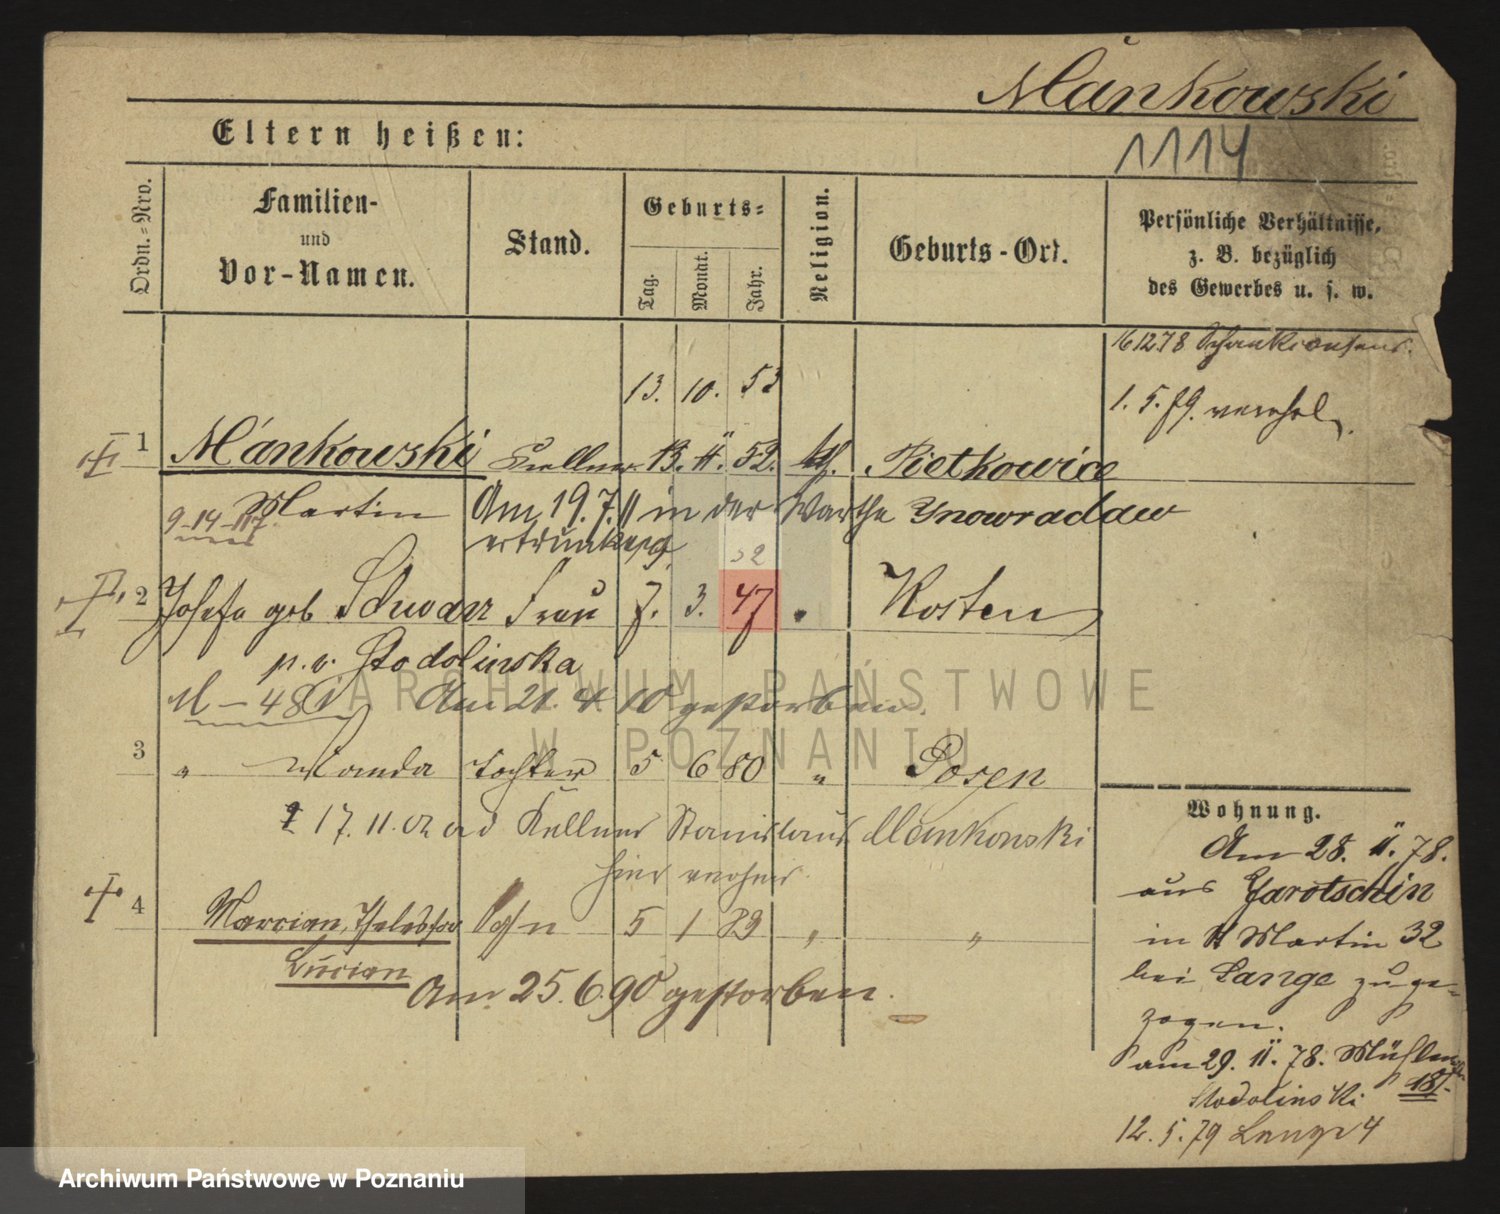 Mańkowski
Eltern heißen:
1114
Ordn.=Nro.
Familien-
und
Vor-Namen.
Stand.
Geburts=
Tag.
Monat.
Jahr.
Religion.
Geburts-Ort.
Persönliche Verhältnisse,
z. B. bezüglich
des Gewerbes u. s. w.
16 12 78
13. 10. 53
1. 5. 79.
1 Mańkowski Kellner 13. 11. 52. Pietkowice
Martin Am 19.7.11 in der Warthe Ynowradaw
9-14-117
ertrunken
52
2 Josefa geb Schwarz Frau 7. 3. 47 " Kosten
p. v. Stodolinska
M - 48 Am 21. 4. 10 gestorben.
ARCHIWUM PAŃSTWOWE
W POZNANIU
3 " Wanda Tochter 5 6 80 " Posen
17. 11. 02 ad Kellner Stanislaus Mankowski
hier
4 Marcian, Sohn 5 1 89 " "
Lucian
Am 25.6.90 gestorben.
Wohnung.
Am 28. 11. 78.
aus Jarotschin
in St Martin 32
bei Lange zuge-
zogen.
am 29. 11. 78. Mühlen
18
Stodolinski
12. 5. 79 Lange 4
Archiwum Państwowe w Poznaniu